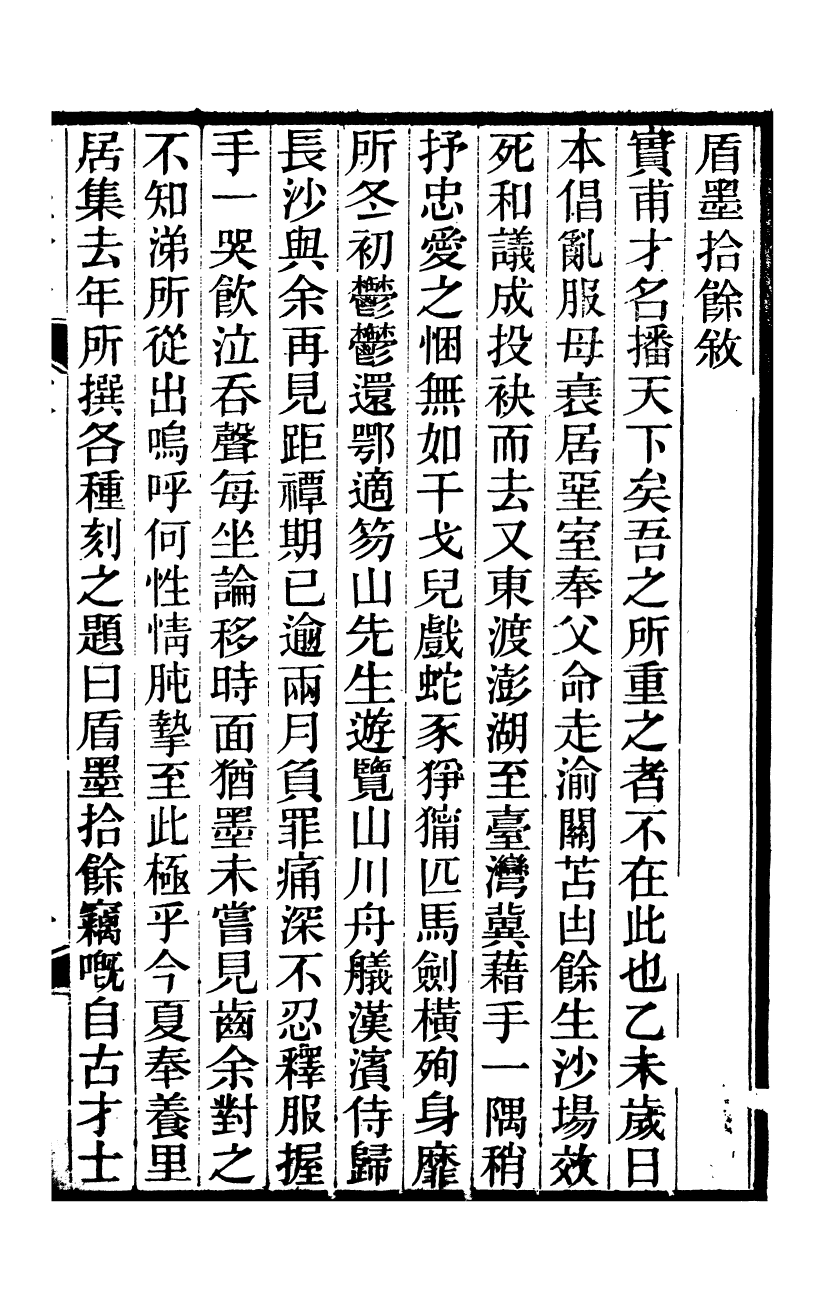 盾墨拾餘敘
實甫才名播天下矣吾之所重之者不在此也乙未歲日
本倡亂服母衰居堊室奉父命走渝關苫凷餘生沙場效
死和議成投袂而去又東渡澎湖至臺灣冀藉手一隅稍
抒忠愛之悃無如干戈兒戲蛇豕猙獝匹馬劍橫殉身靡
所冬初鬱鬱還鄂適笏山先生遊覽山川舟艤漢濱侍歸
長沙與余再見距禫期已逾兩月負罪痛深不忍釋服握
手一哭飲泣吞聲每坐論移時面猶墨未嘗見齒余對之
不知涕所從出嗚呼何性情肫摯至此極乎今夏奉養里
居集去年所撰各種刻之題曰盾墨拾餘竊嘅自古才士